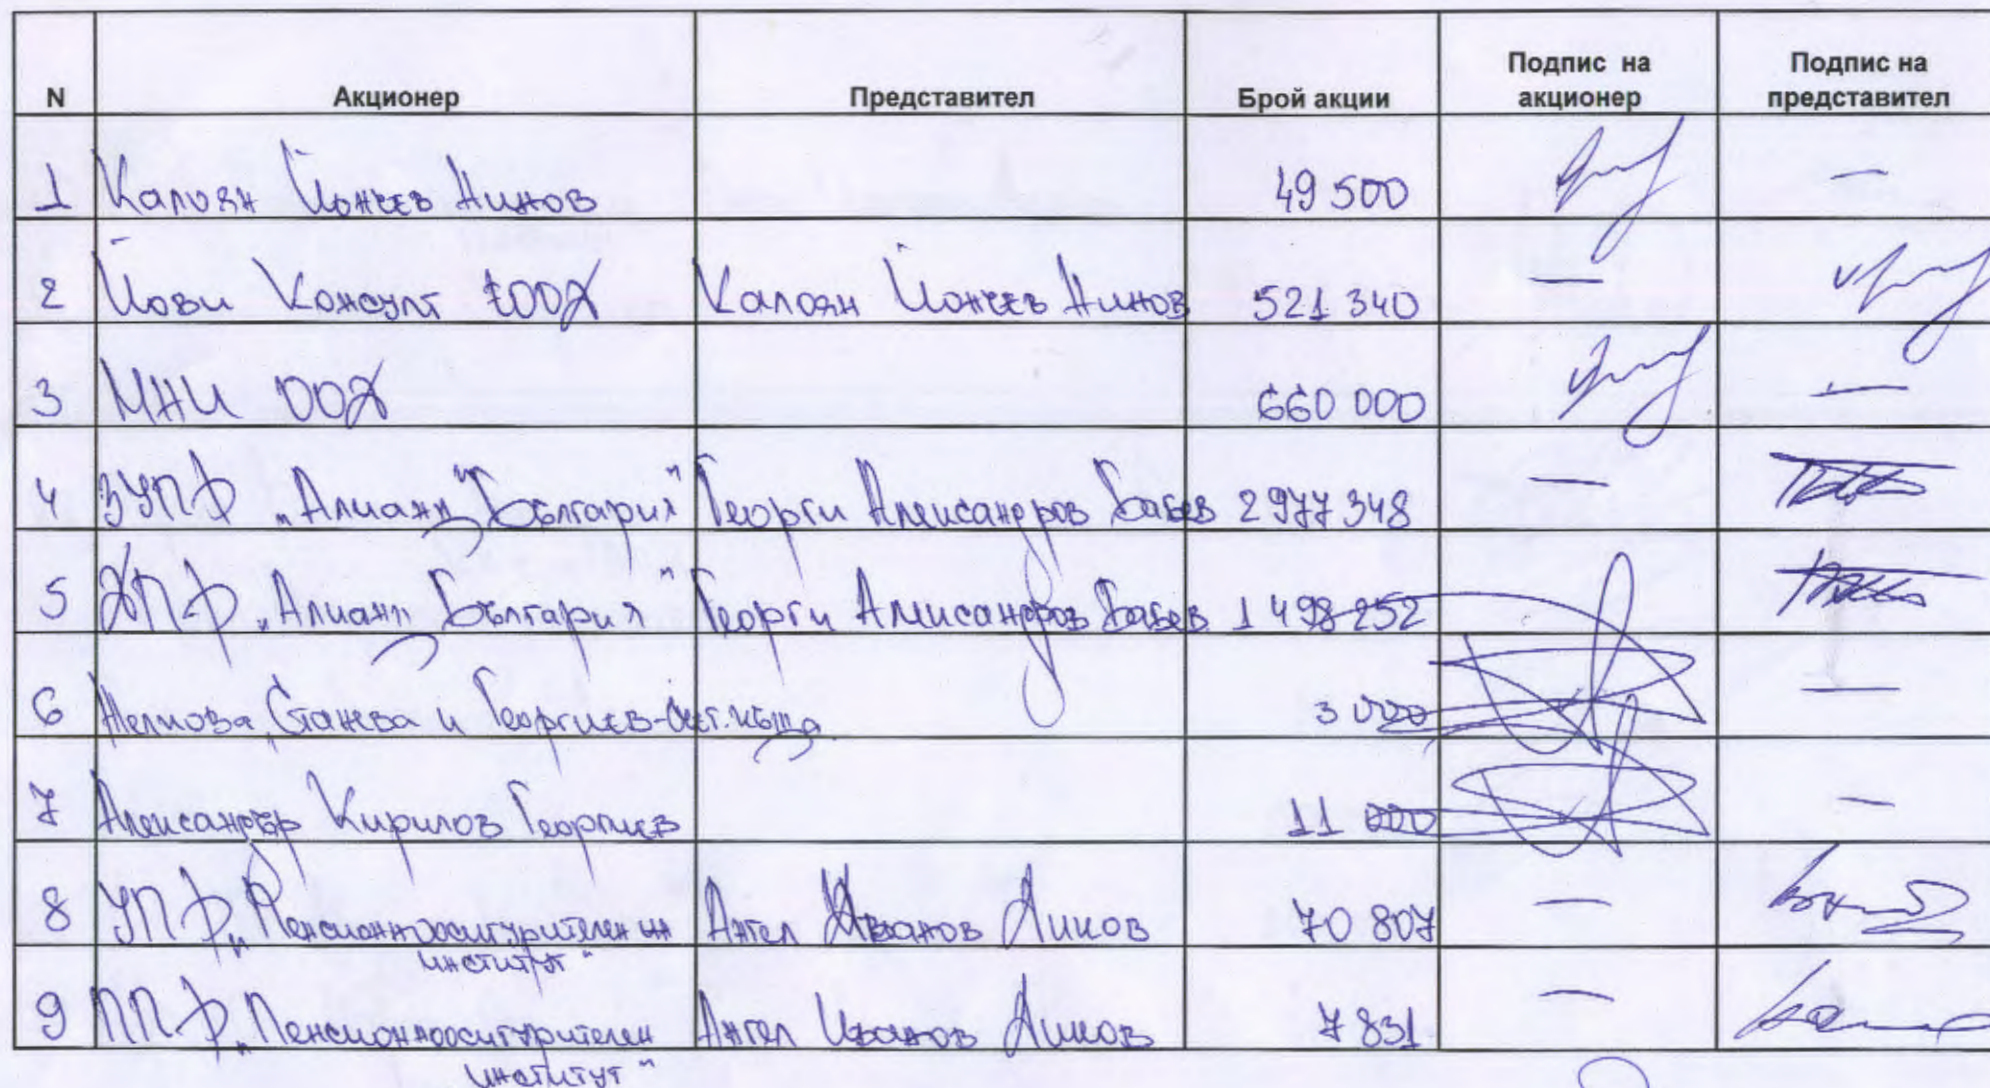 N Акционер Представител Брой акции Подпис на акционер Подпис на представител
1 Калоян Йончев Нинов 49 500 —
2 Йови Консулт ЕООД Калоян Йончев Нинов 521 340 —
3 МНИ ООД 660 000 —
4 ЗУПФ "Алианц България" Георги Александров Бабев 2 977 348 —
5 ДПФ "Алианц България" Георги Александров Бабев 1 498 252
6 Станева и Георгиев 3 000 —
7 Александър Кирилов Георгиев 11 000 —
8 УПФ "Пенсионноосигурителен ин Ангел Иванов 70 807 —
институт"
9 ППФ "Пенсионноосигурителен Ангел Иванов 7 831 —
институт"